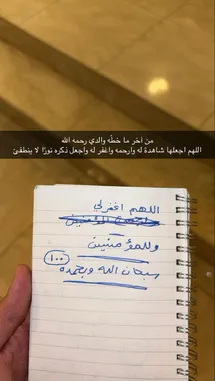 من آخر ما خطّه والدي رحمه الله
اللهم اجعلها شاهدة له وارحمه واغفر له واجعل ذكره نورًا لا ينطفئ
اللهم اغفر لي
وللمؤمنين
١٠٠
سبحان الله وبحمده